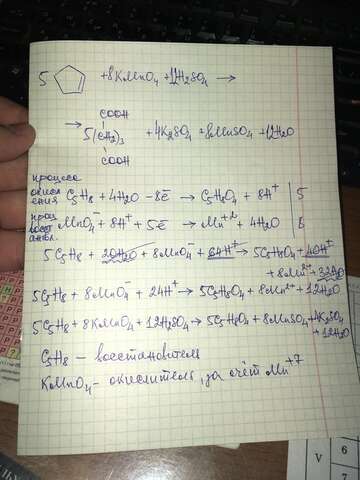 5 +8KMnO4 +12H2SO4 →
COOH
→ 5(CH2)3 + 4K2SO4 + 8MnSO4 + 12H2O
COOH
процесс
окисления C5H8 + 4H2O – 8ē → C5H8O4 + 8H+ | 5
проц восстановл. MnO4– + 8H+ + 5ē → Mn+2 + 4H2O | 8
5C5H8 + 20H2O + 8MnO4– + 64H+ → 5C5H8O4 + 40H+
+ 8Mn2+ + 32H2O
5C5H8 + 8MnO4– + 24H+ → 5C5H8O4 + 8Mn2+ + 12H2O
5C5H8 + 8KMnO4 + 12H2SO4 → 5C5H8O4 + 8MnSO4 + 4K2SO4
+ 12H2O
C5H8 – восстановитель
KMnO4 – окислитель, за счёт Mn+7
V
6
7